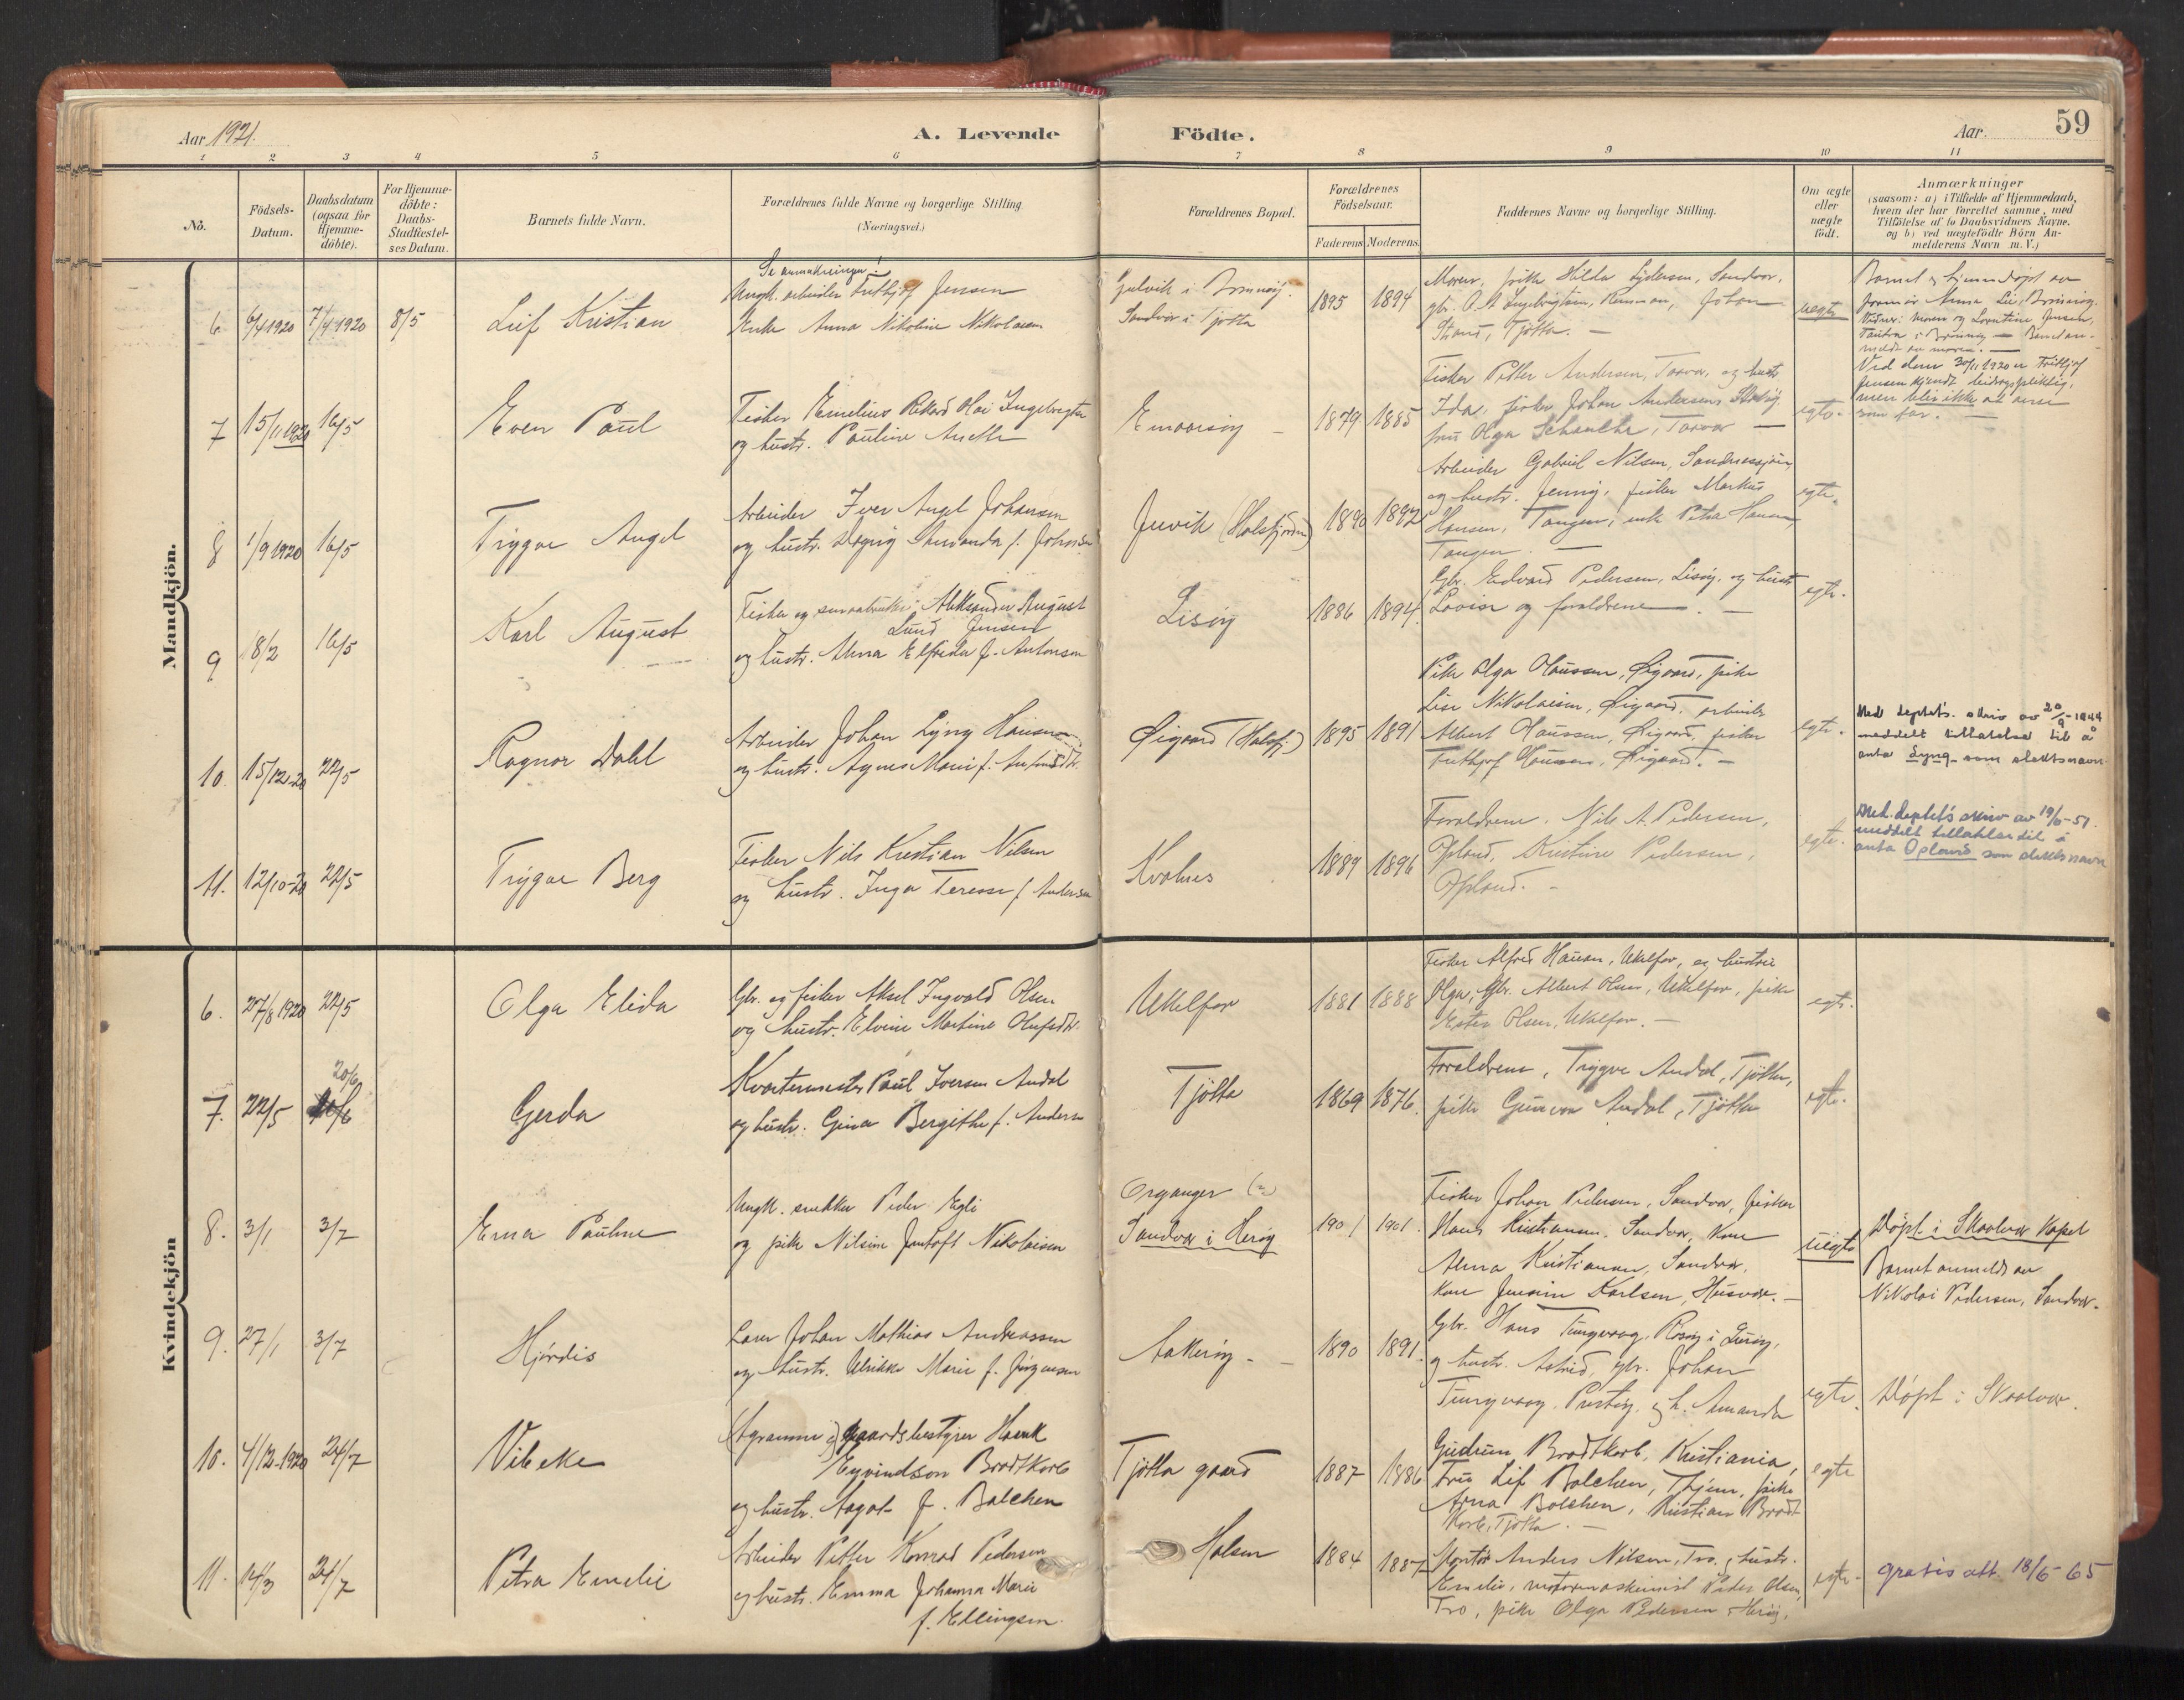 Aar 1921.
A. Levende
Födte.
Aar.
59
1 2 3 4 5 6 7 8 9 10 11
No.
Födsels-Datum.
Daabsdatum (ogsaa for Hjemme-döbte).
For Hjemme-döbte: Daabs-Stadfæstel-ses Datum.
Barnets fulde Navn.
Forældrenes fulde Navne og borgerlige Stilling
(Næringsvei.)
Forældrenes Bopæl.
Forældrenes Födselsaar.
Faderens Moderens
Faddernes Navne og borgerlige Stilling.
Om ægte eller uægte födt.
Anmærkninger
(saasom: a) i Tilfælde af Hjemmedaab,
hvem der har forrettet samme, med
Tilföielse af to Daabsvidners Navne.
og b) ved uægtefödte Börn An-
melderens Navn m. V.)
Mandkjön.
6. 6/4 1920 7/4 1920 8/5
Leif Kristian
Se anmerkninger!
Ungk. arbeider Frithjof Jensen
Enke Anna Nikoline Nikolaisen
i Brønnøy.
Sandvær i Tjøtta
1895 1894
Moren, pike Hilda Lydersen, Sandvær,
gbr. O. A. Ingebrigtsen, Johan
Strand, Tjøtta. —
uegte
Barnet er hjemmedøpt av
jormor Anna Lie, Brønnøy.
Vidner: moren og Lorentine Jensen,
i Brønnøy — Barnet an-
meldt av moren. —
Ved dom 30/11 1920 er Frithjof
Jensen kjendt bidragspliktig,
men blir ikke at anse
som far. —
7 15/11 1920 16/5
Even Paul
Fisker Emelius Rikard Olai Ingebrigtsen
og hustr. Pauline Anette
1879 1885
Fisker Petter Andersen, Torvær, og hustr.
Ida, fisker Johan Andersen
fru Olga Schanche, Torvær —
egte.
8 1/9 1920 16/5
Trygve Angel
Arbeider Iver Angel Johansen
og hustr. Dagny Amanda f. Johnsen
(Halsfjorden)
1890 1892
Arbeider Gabriel Nilsen, Sandnessjøen,
og hustr. Jenny, fisker Markus
Hansen, Tangen, enke Petra Hansen
Tangen. —
egte.
9 18/2 16/5
Karl August
Fisker og smaabruker Aleksander August
Lund Jensen
og hustr. Alma Elfrida f. Antonsen
Lisøy
1886 1894.
Gbr. Edvard Pedersen, Lisøy, og hustr
Lovise og forældrene. —
egte.
10. 15/12-20 22/5
Ragnar Dahl
Arbeider Johan Lyng Hansen
og hustr. Agnes Marie f. Antonsdtr.
Øigaard (Halsfj.)
1895 1891
Pike Olga Hansen, Øigaard, pike
Lise Nikolaisen, Øigaard, arbeider
Albert Hansen, Øigaard, fisker
Frithjof Hansen, Øigaard. —
egte.
Med deptets. skriv av 20/9-1944
meddelt tillatelse til å
anta Lyng som slektsnavn
11. 12/10-20 22/5
Trygve Berg
Fisker Nils Kristian Nilsen
og hustr. Inga Terese f. Andersen
Kvalnes
1889 1896
Forældrene, Nils A. Pedersen,
Opland, Kristine Pedersen,
Opland. -
egte.
Med. deptets skriv av 19/6-51.
meddelt tillatelse til å
anta Opland som slektsnavn
Kvindekjön
6. 27/8 1920 22/5
Olga Elida
Gbr. og fisker Aksel Ingvald Olsen
og hustr. Elvine Martine Olufsdtr.
Ulkelfor
1881 1888
Fisker Alfred Hansen, Ulkelfor, og hustru
Olga, Gbr. Albert Olsen, Ulkelfor, pike
Ester Olsen, Ulkelfor. —
egte.
7. 22/5 20/6
Gerda
Kvartermester Paul Iversen Andal
og hustr. Gina Bergithe f. Andersen
Tjøtta
1869 1876.
Forældrene, Trygve Andal, Tjøtta,
pike Gunvor Andal, Tjøtta
egte.
8. 3/1 3/7
Erna Pauline
Ungk. snekker Peder Egli
og pike Nilsine Jentoft Nikolaisen
Organger (?)
Sandvær i Herøy
1901 1901.
Fisker Johan Pedersen, Sandvær, fisker
Hans Kristiansen, Sandvær, kone
Alma Kristiansen, Sandvær,
kone Jensine Karlsen, Husvær. —
uegte
Døpt i Skaalvær Kapel
Barnet anmeldt av
Nikolai Pedersen, Sandvær.
9. 27/1 3/7
Hjørdis
Lærer Johan Mathias Andreassen
og hustr. Ulrikke Marie f. Jørgensen
Aakerøy -
1890 1891.
Gbr. Hans Tungvaag, Rosøy i Lurøy,
og hustr. Astrid, gbr. Johan
Tungvaag, Prestøy, og h. Amanda
egte.
Døpt i Skaalvær.
10. 4/12-1920 24/7
Vibeke
(Agronom og) gaardsbestyrer Henrik
Eyvindson Brodtkorb
og hustr. Aagot f. Balchen
Tjøtta gaard
1887 1886
Gudrun Brodtkorb, Kristiania,
Fru Lif Balchen, Thjem, pike
Arna Balchen, Kristian Brodt
korb, Tjøtta. —
egte
11. 14/3 24/7
Petra Emelie
Arbeider Petter Konrad Pedersen
og hustr. Emma Johanna Marie
f. Ellingsen.
Holsen
1884 1887
Anders Nilsen, Tro, og hustr.
Emelie, motormaskinist Peder Olsen,
Tro, pike Olga Pedersen, Herøy.
egte.
gratis att. 18/6-65